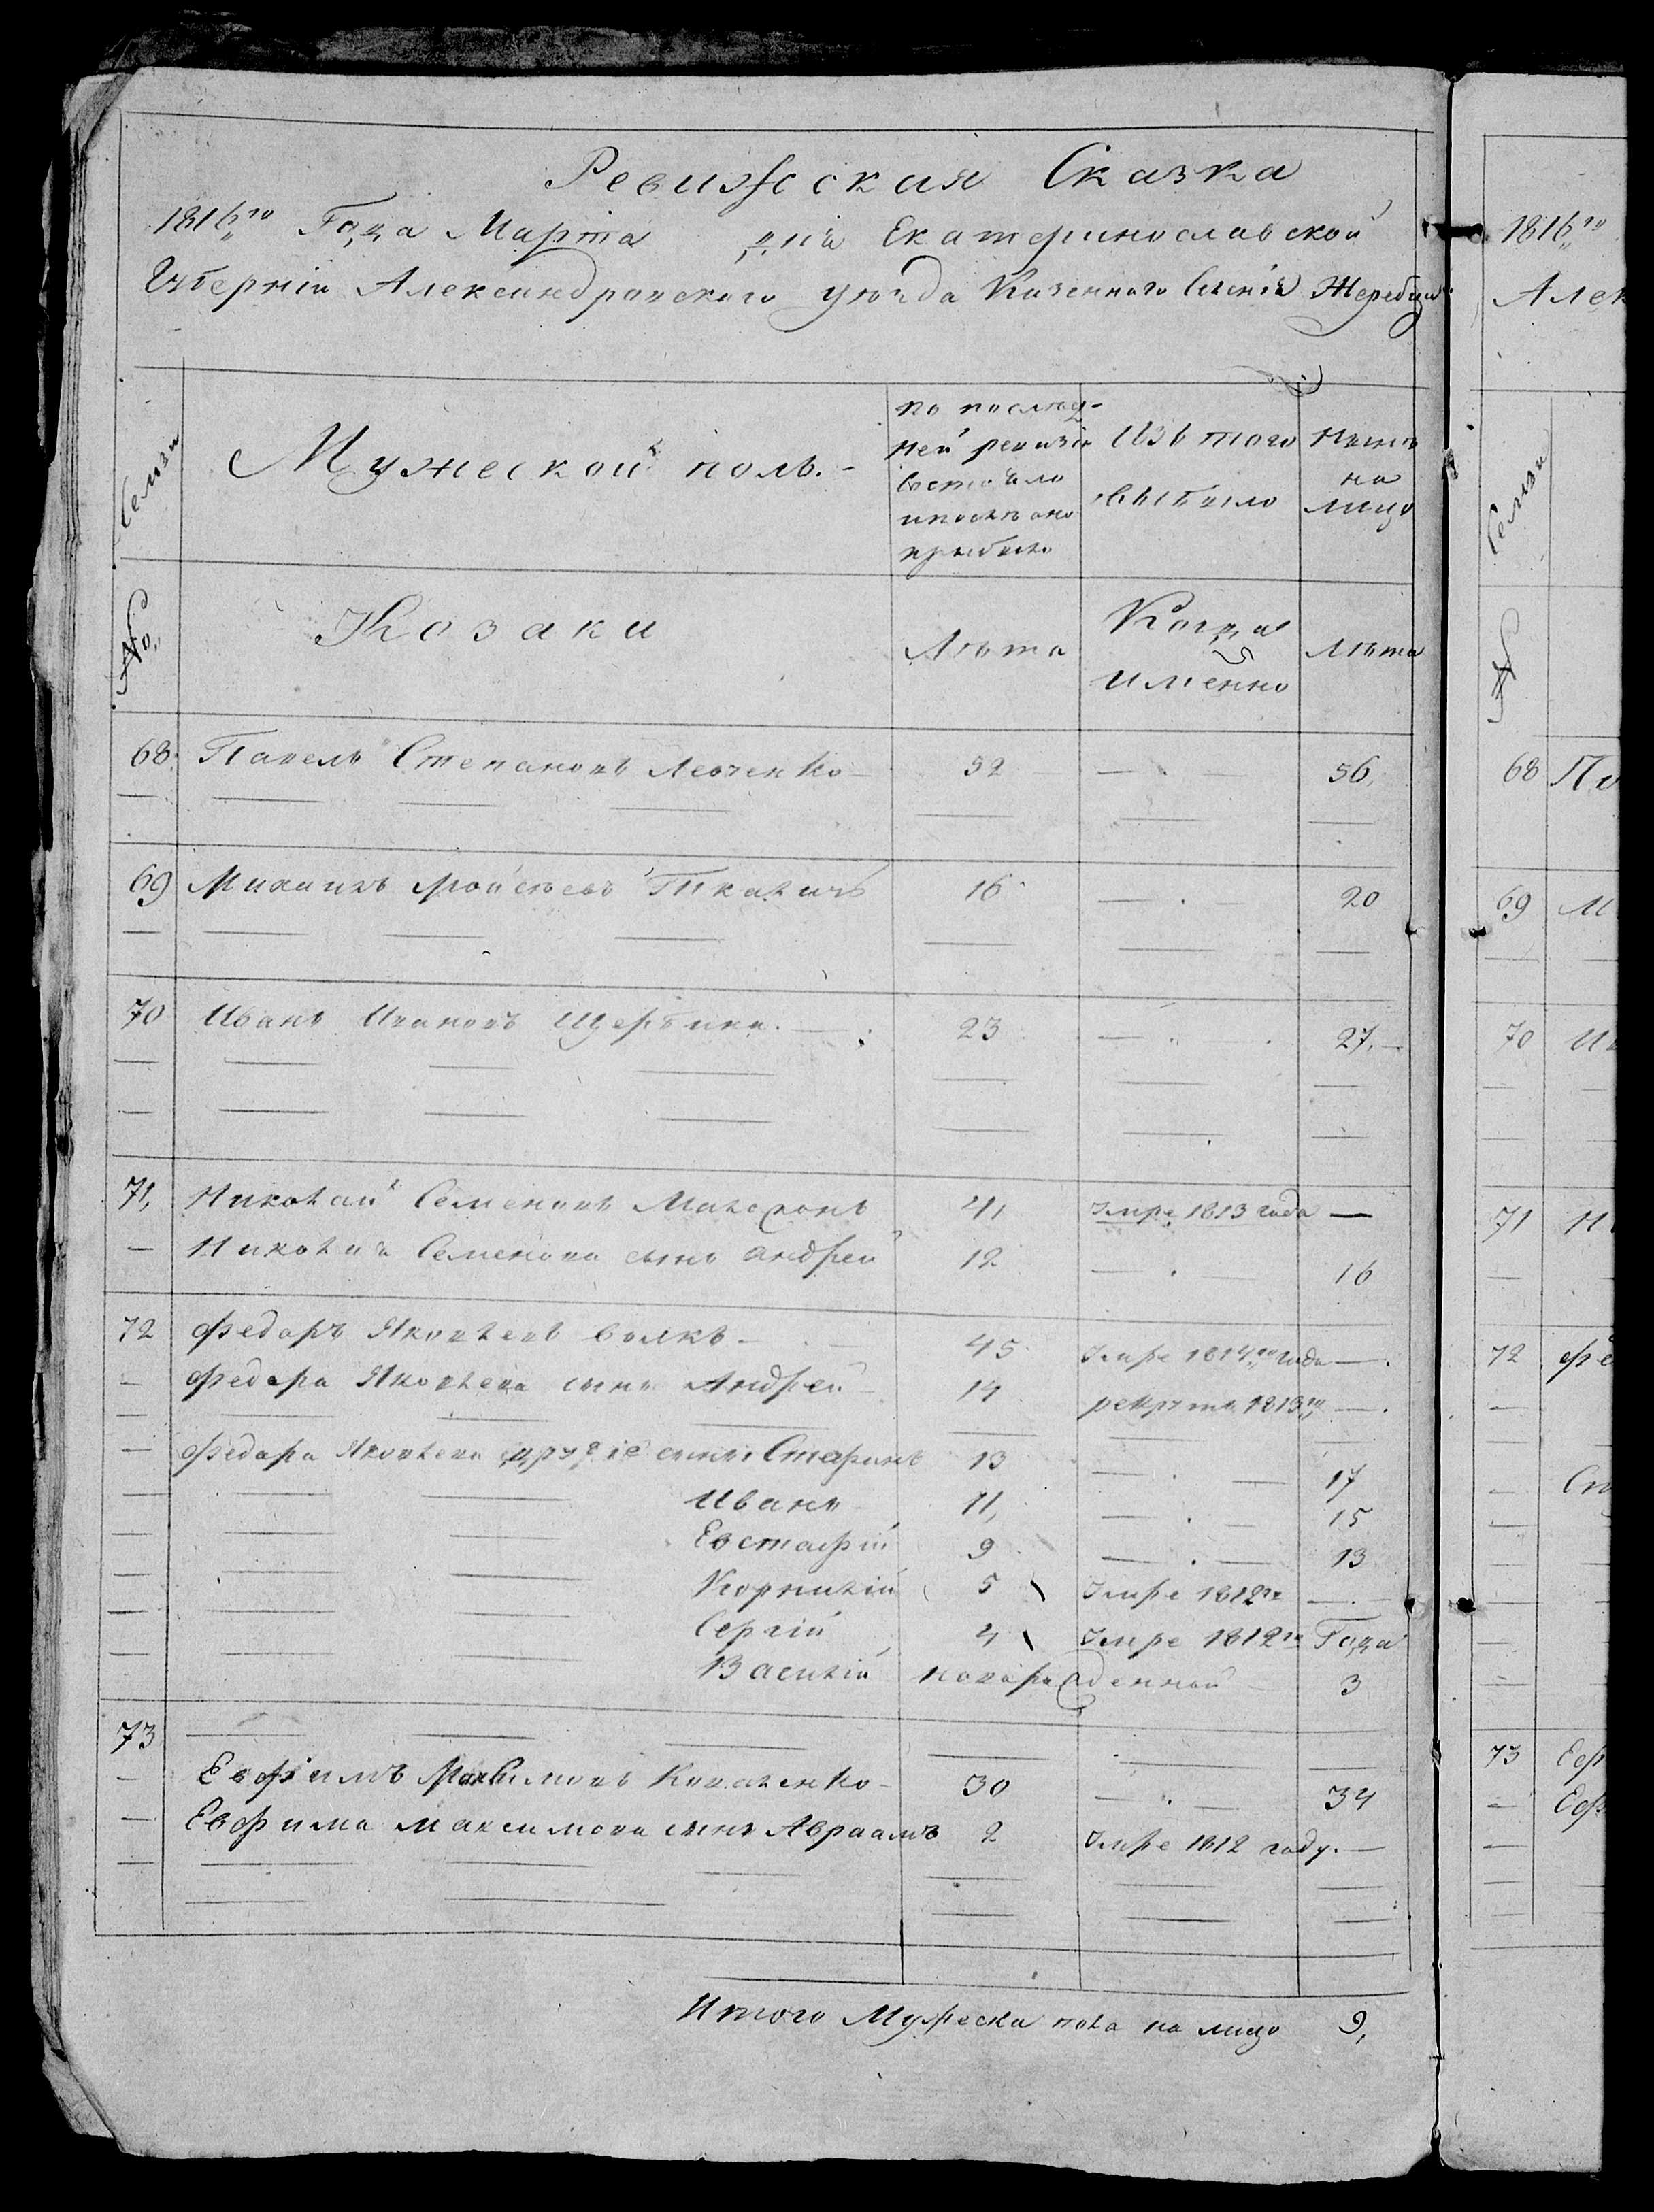 Ревижская Сказка
1816го Года Марта дня Екатеринославской
Губерніи Александровского уезда Казенного Селенія Жеребца
Семьи
Мужеской полъ.
по послед-
ней ревизіи
состояло
и после оной
прибыло
Изъ того
выбыло
Ныне
на
лицо
№
Козаки
Лета
Когда
именно
Лета
68 Павелъ Степановъ Левченко 52 — 56
69 Михаилъ Мойсеевъ Ткачичъ 16 — 20
70 Иванъ Ивановъ Щербина 23 — 27
71 Николай Семеновъ Малахонъ 41 Умре 1813 года —
— Николая Семенова сынъ Андрей 12 — 16
72 Федоръ Яковлевъ Волкъ 45 Умре 1814го года —
— Федора Яковлева сынъ Андрей 14 рекрутъ 1813го —
— Федора Яковлева другіе сыны Стефанъ 13 — 17
Иванъ 11 — 15
Евстафій 9 — 13
Корнилій 5 Умре 1812го —
Сергій 4 Умре 1812го Года
Василій новорожденной 3
73
Евфимъ Максимовъ Коваленко 30 — 34
— Евфима Максимова сынъ Авраамъ 2 Умре 1812 году. —
Итого Мужеска пола на лицо 9
1816го
Алек
Семьи
№
68 Па
69 М
70 Ив
71 Н
72 Фе
Ст
73 Еф
Еф